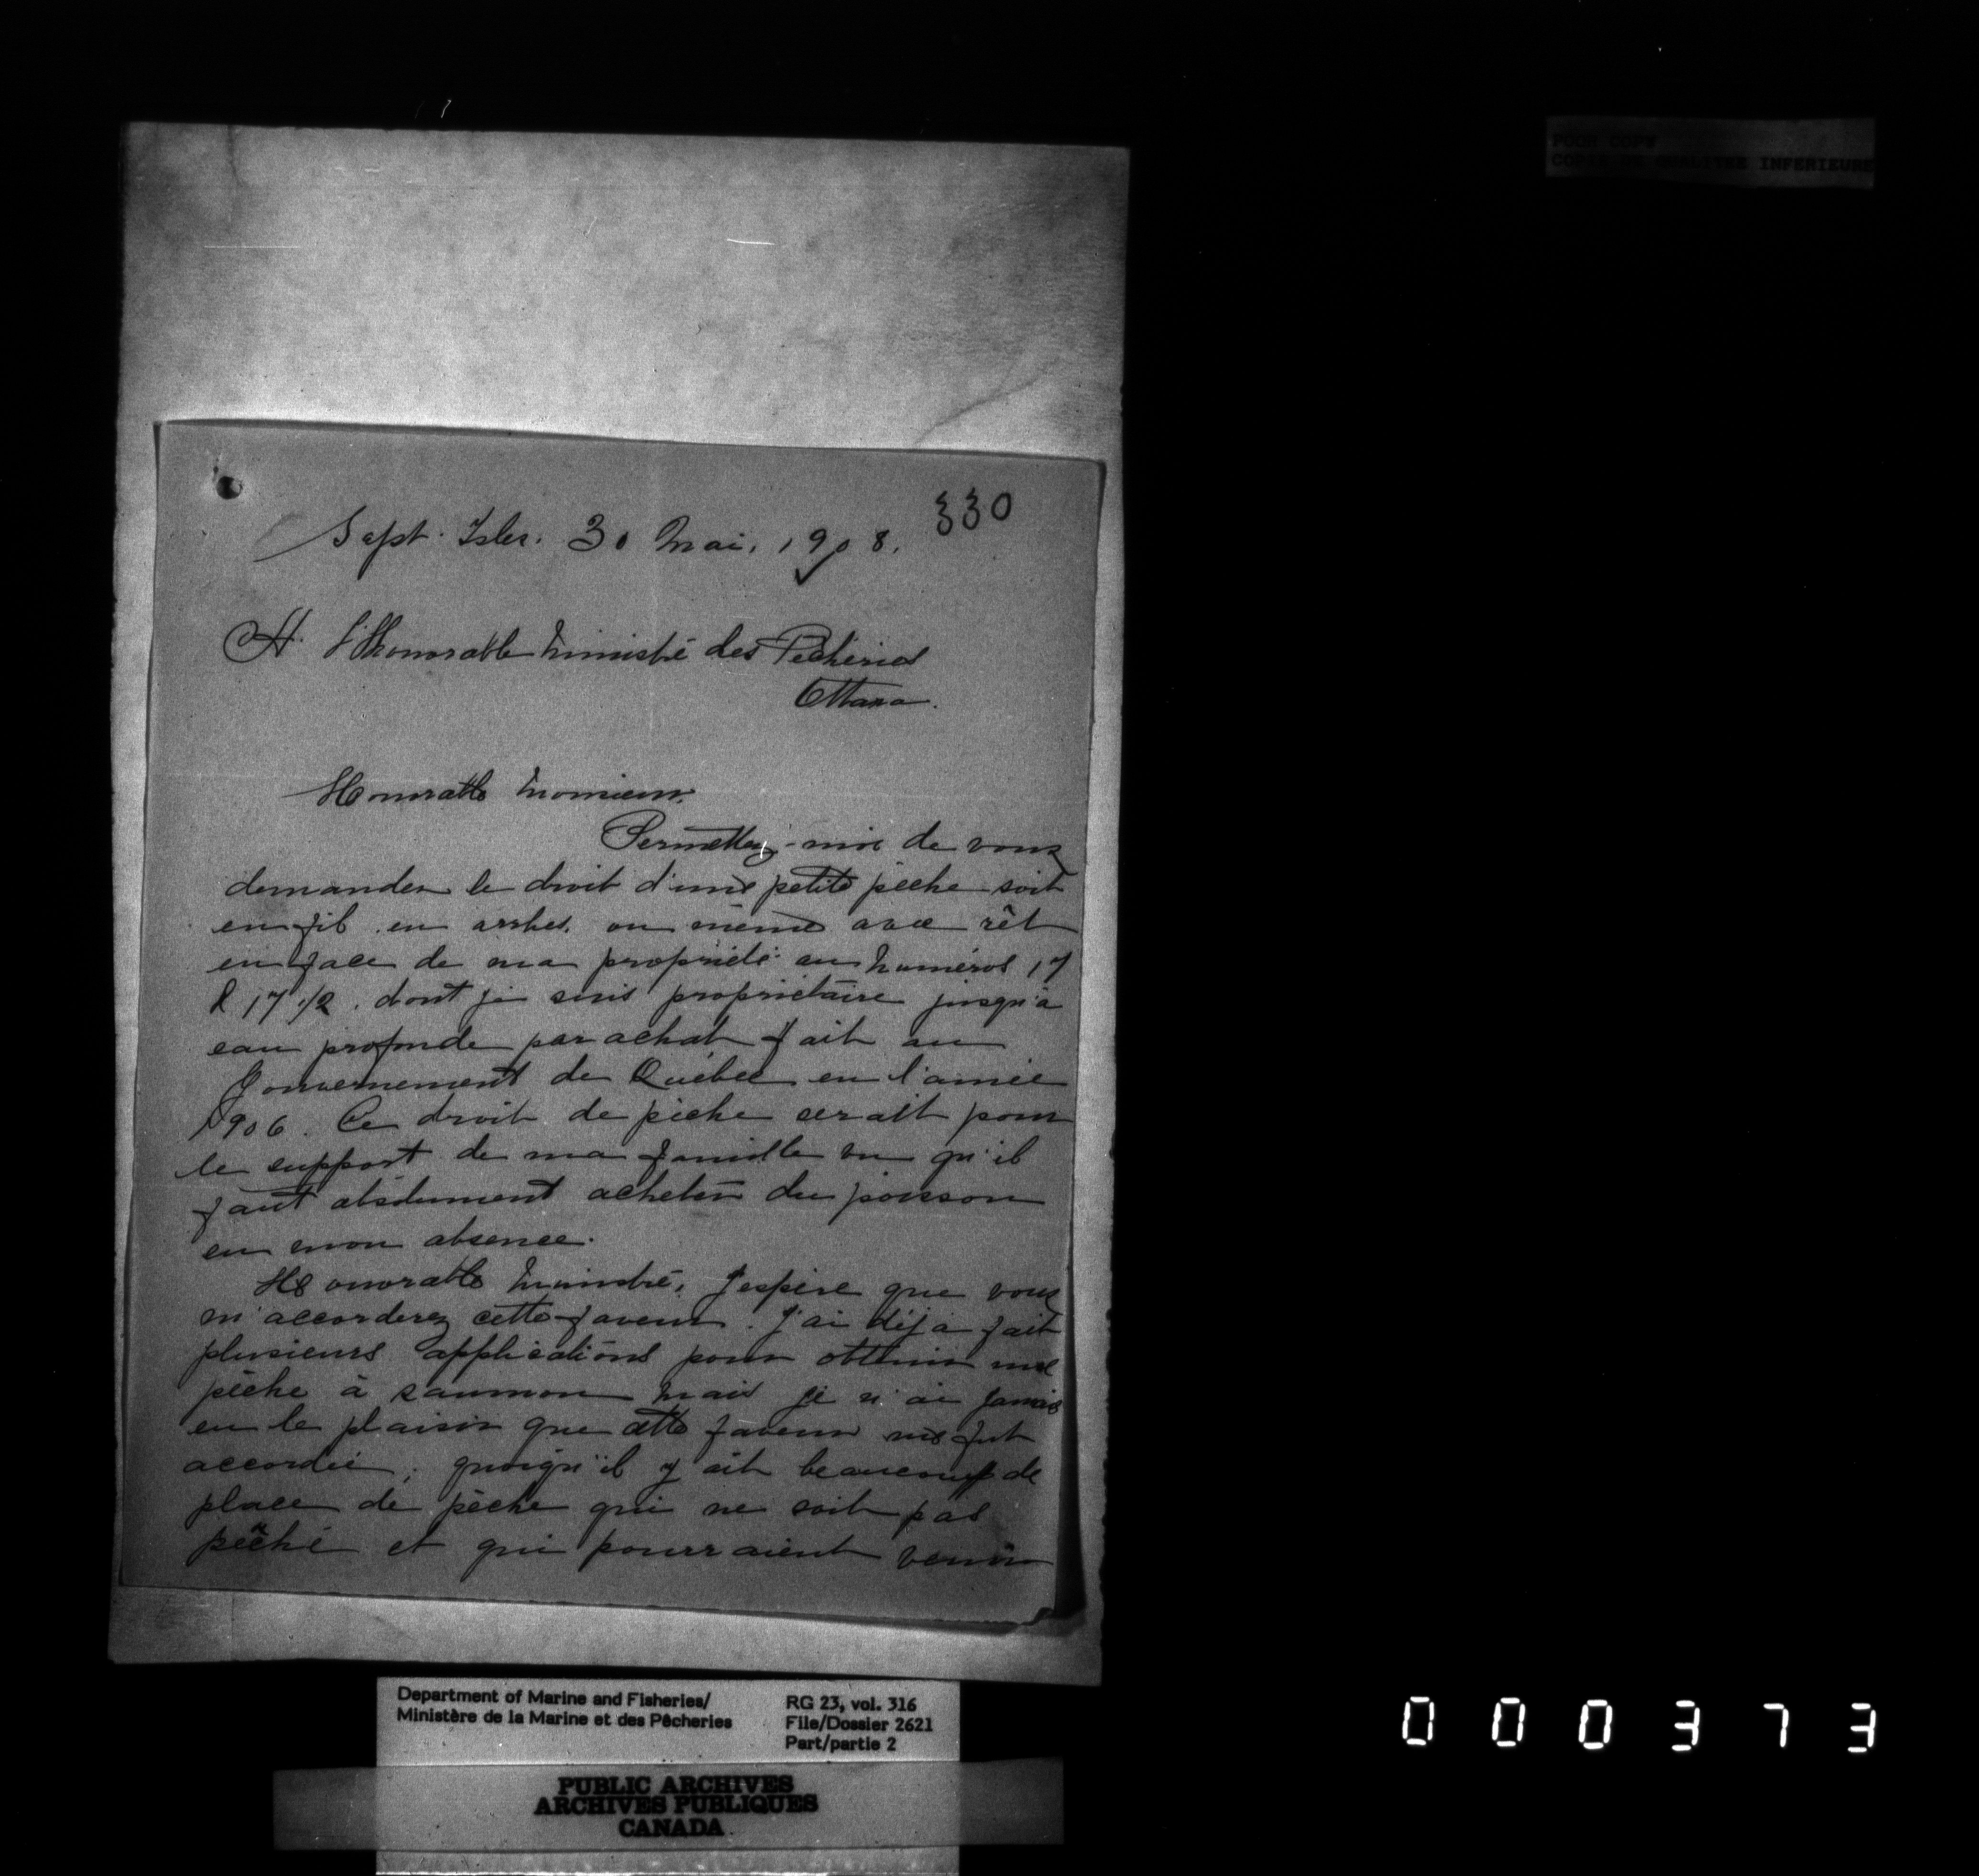 POOR COPY
COPIE DE QUALITEE INFERIEURE
330
Sept. Isles. 30 Mai. 1908.
A l'Honorable Ministre des Pêcheries
Ottawa.
Honorable Monsieur.
Permettez-moi de vous
demander le droit d'une petite pêche soit
en fil en arches ou même avec rêt
en face de ma propriété au Numéros 17
& 17 1/2. dont je suis propriétaire jusqu'à
eau profonde par achat fait au
Gouvernement de Québec en l'année
1906. Ce droit de pêche serait pour
le support de ma famille vu qu'il
faut absolument acheter du poisson
en mon absence.
Honorable Ministre, J'espère que vous
m'accorderez cette faveur. J'ai déja fait
plusieurs applications pour obtenir une
pêche à saumon mais je n'ai jamais
eu le plaisir que cette faveur me fut
accordée; quoiqu'il y ait beaucoup de
place de pêche qui ne soit pas
pêché et qui pourraient venir
Department of Marine and Fisheries/
Ministère de la Marine et des Pêcheries
RG 23, vol. 316
File/Dossier 2621
Part/partie 2
PUBLIC ARCHIVES
ARCHIVES PUBLIQUES
CANADA
000373